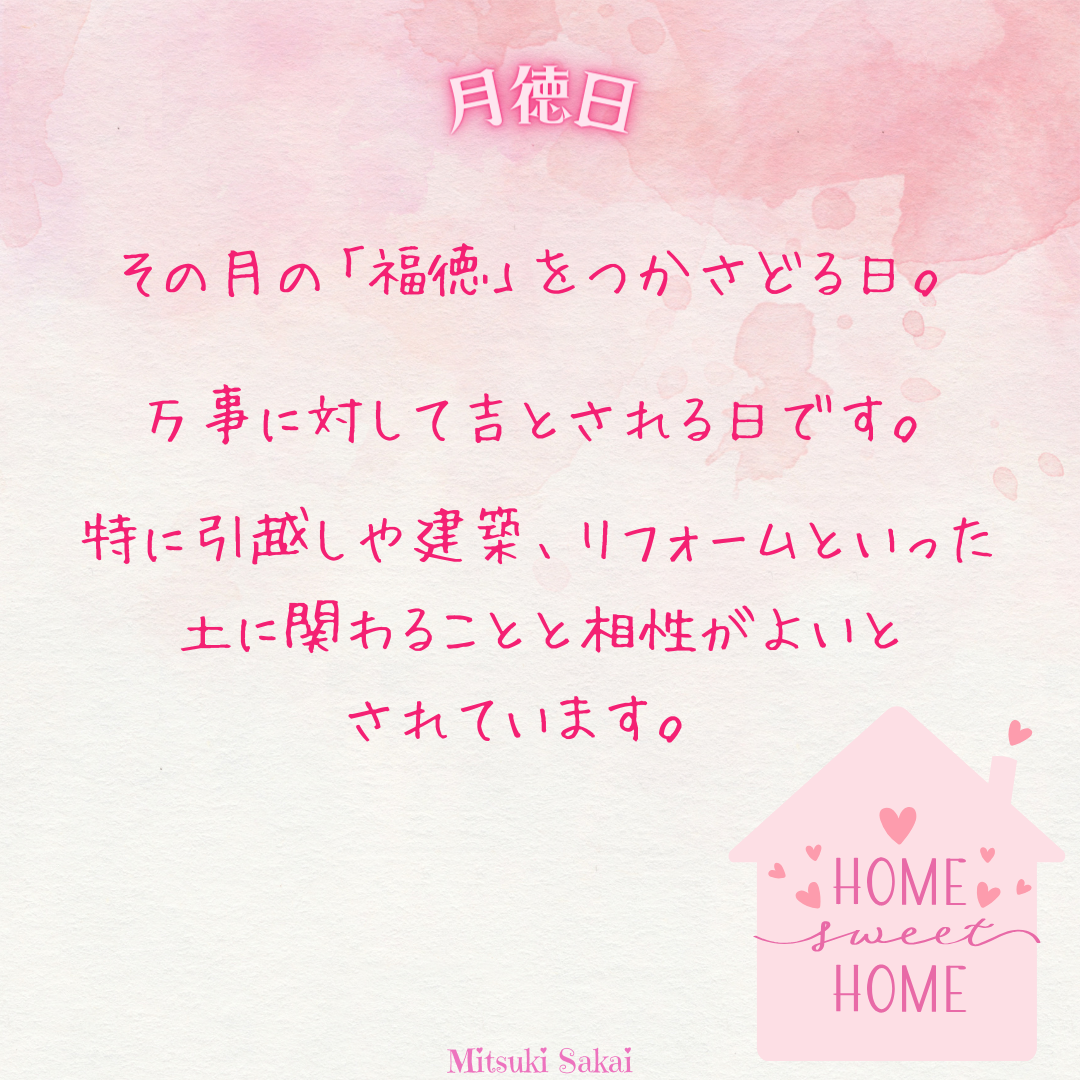 月徳日
その月の「福徳」をつかさどる日。
万事に対して吉とされる日です。
特に引越しや建築、リフォームといった
土に関わることと相性がよいと
されています。
HOME
sweet
HOME
Mitsuki Sakai